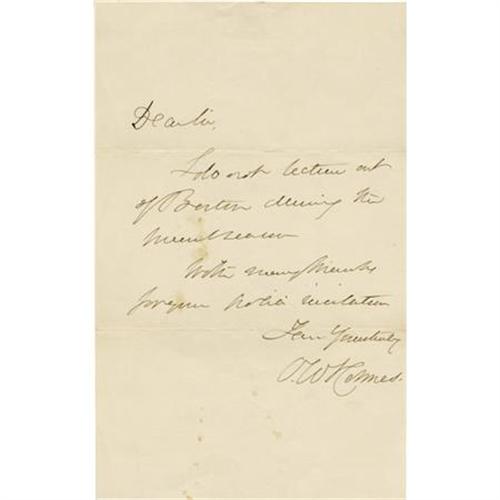 Dear Sir,
I do not lecture out
of Boston during the
present season
With many thanks
for your polite invitation
I am Yours truly
O. W. Holmes.